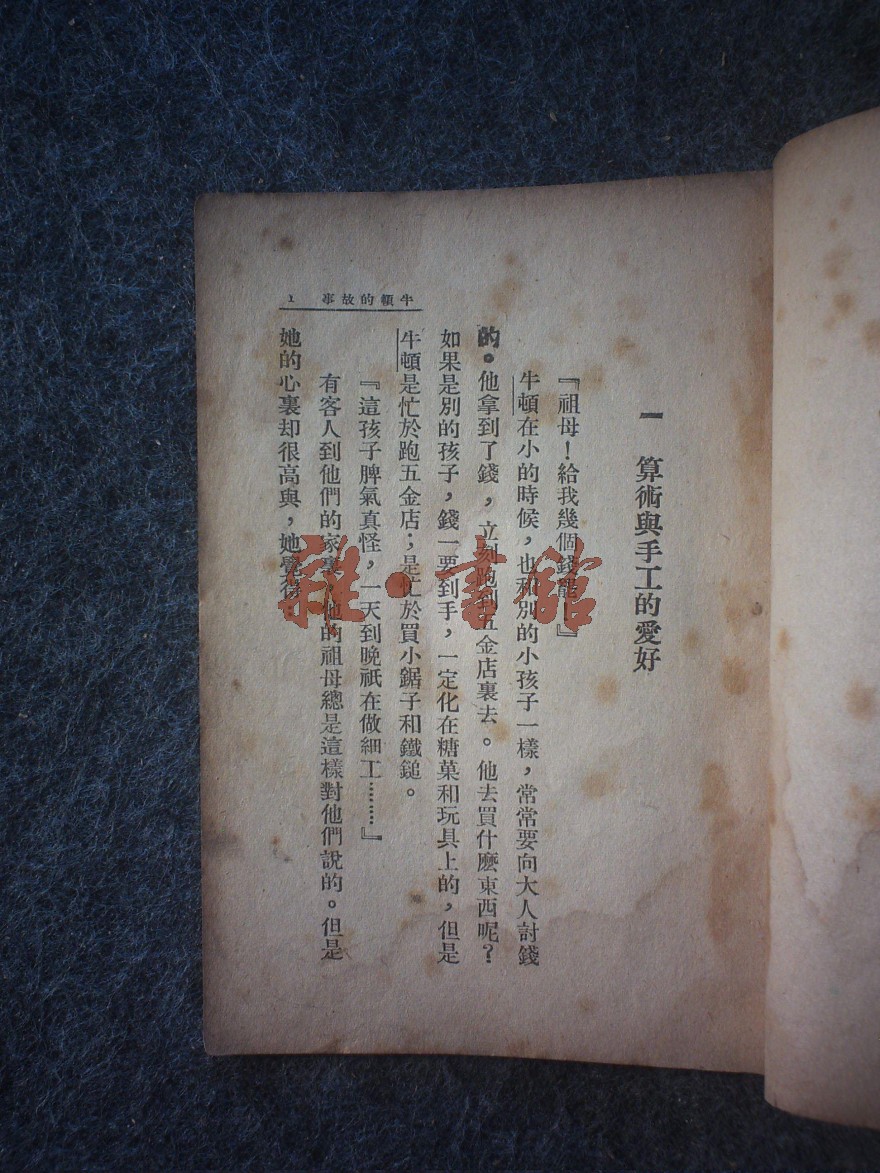 一　算術與手工的愛好
『祖母！給我幾個錢罷！』
牛頓在小的時候，也和別的小孩子一樣，常常要向大人討錢
的。他拿到了錢，立刻跑到五金店裏去。他去買什麽東西呢？
如果是別的孩子，錢一要到手，一定化在糖菓和玩具上的，但是
牛頓是忙於跑五金店；是忙於買小鋸子和鐵鎚。
『這孩子脾氣真怪，一天到晚祇在做細工………』
有客人到他們的家裏，他的祖母總是這樣對他們說的。但是
她的心裏却很高興，她覺得：
牛頓的故事　1
雜·書館